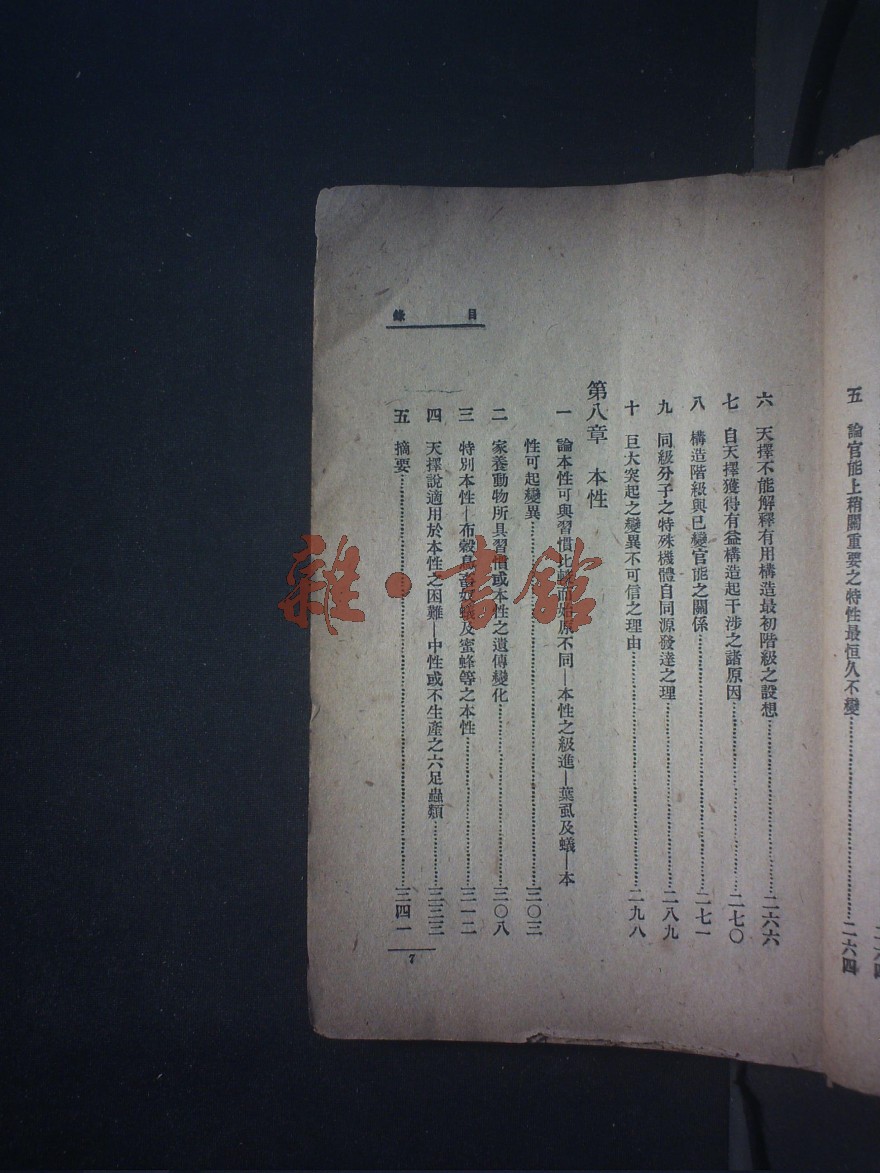 五　論官能上稍關重要之特性最恒久不變……二六四
目錄
六　天擇不能解釋有用構造最初階級之設想……二六六
七　自天擇獲得有益構造起干涉之諸原因……二七〇
八　構造階級與已變官能之關係……二七一
九　同級分子之特殊機體自同源發達之理……二八九
十　巨大突起之變異不可信之理由……二九八
第八章　本性
一　論本性可與習慣比較而始原不同—本性之級進—葉虱及蟻—本
性可起變異……三〇三
二　家養動物所具習慣或本性之遺傳變化……三〇八
三　特別本性—布穀鳥畜奴蟻及蜜蜂等之本性……三一二
四　天擇說適用於本性之困難—中性或不生產之六足蟲類……三三三
五　摘要……三四一
7
雜·書館